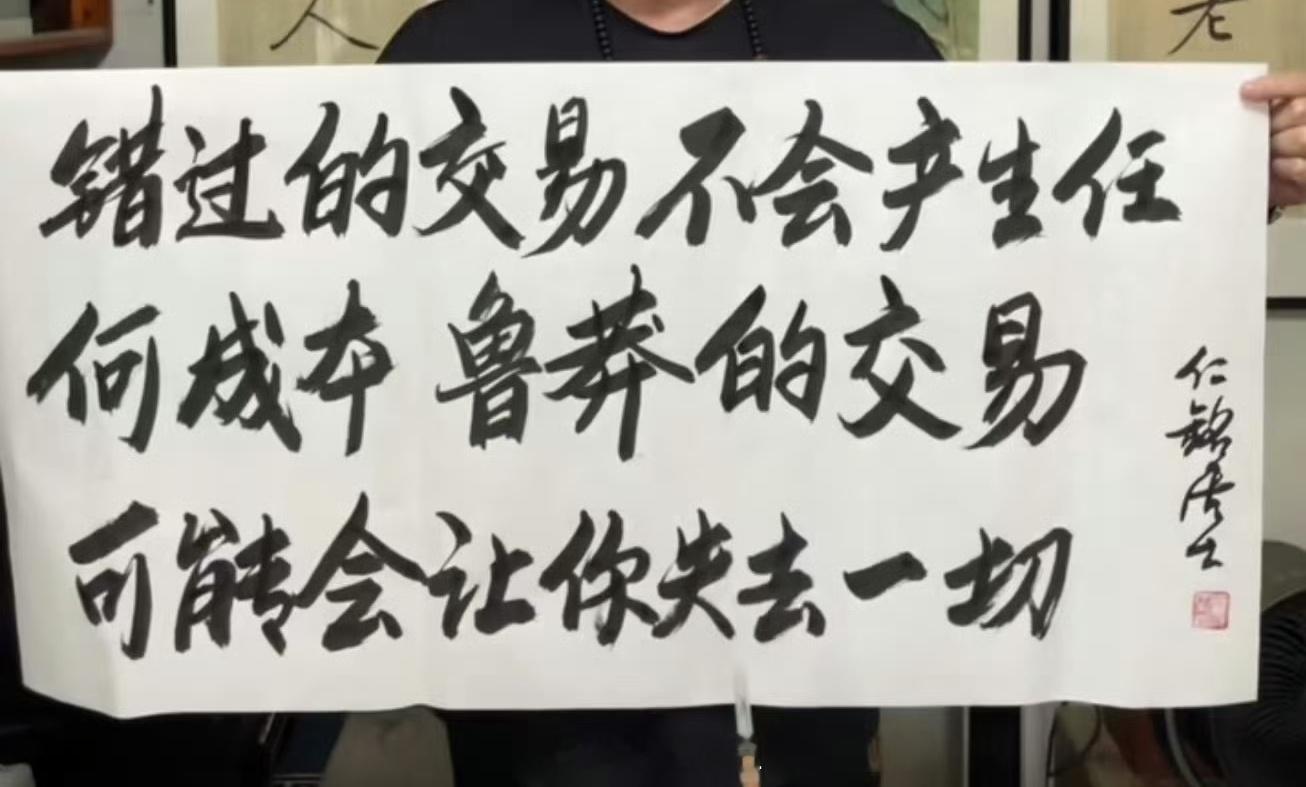 错过的交易不会产生任
何成本 鲁莽的交易
可能会让你失去一切
仁铭居士
人
老